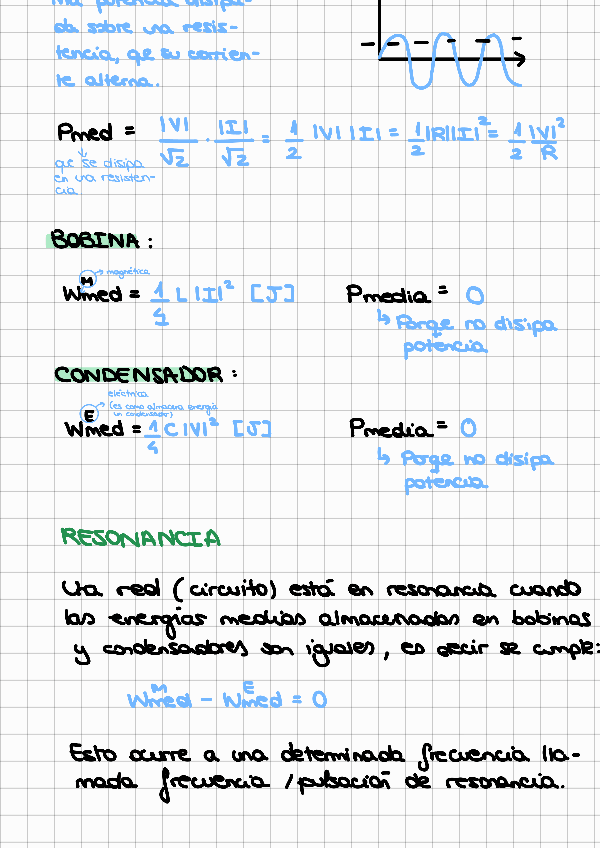 da sobre una resis-
tencia, que su corrien-
te alterna.
Pmed = |V|/√2 · |I|/√2 = 1/2 |V| |I| = 1/2 |R||I|² = 1/2 |V|²/R
que se disipa
en una resisten-
cia
BOBINA:
magnética
W^M med = 1/4 L |I|² [J] Pmedia = 0
↳ Porqe no disipa
potencia
CONDENSADOR:
eléctrica
(es como almacena energía
un condensador)
W^E med = 1/4 C |V|² [J] Pmedia = 0
↳ Porqe no disipa
potencia
RESONANCIA
Una red (circuito) está en resonancia cuando
las energías medias almacenadas en bobinas
y condensadores son iguales, es decir se cumple:
W^M med - W^E med = 0
Esto ocurre a una determinada frecuencia lla-
mada frecuencia /pulsación de resonancia.